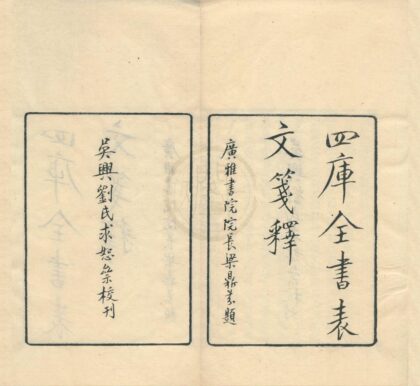 四庫全書表
文箋釋
廣雅書院院長梁鼎芬題
吳興劉氏求恕齋校刊